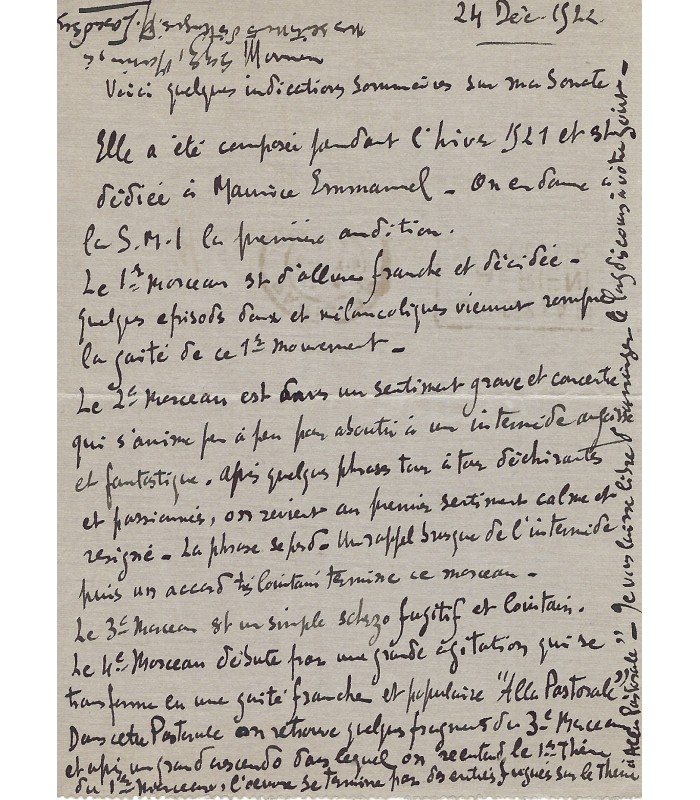 24 Déc. 1922
Voici quelques indications sommaires sur ma Sonate
Elle a été composée pendant l'hiver 1921 et est
dédiée à Maurice Emmanuel – On en donne à
la S.M.I la première audition.
Le 1er Morceau est d'allure franche et décidée –
quelques episods doux et mélancoliques viennent rompre
la gaité de ce 1er mouvement –
Le 2e Morceau est dans un sentiment grave et concerté
qui s'anime peu à peu pour aboutir à un intermède
et fantastique. Après quelques phrases tour à tour déchirantes
et passionnées, on revient au premier sentiment calme et
resigné – La phrase se perd – Un rappel brusque de l'intermède
puis un accord très lointain termine ce morceau –
Le 3e Morceau est un simple scherzo fugitif et lointain.
Le 4e Morceau débute par une grande agitation qui se
transforme en une gaité franche et populaire "Alla Pastorale"
Dans cette Pastorale on retrouve quelques fragments du 3e Morceau
et après un grand crescendo dans lequel on reentend le 1er Thème
du 1er Morceau, l'oeuvre se termine par des entrées fuguées sur le thème
"Alla Pastorale" – Je vous laisse libre d'arranger le discours à votre gout –